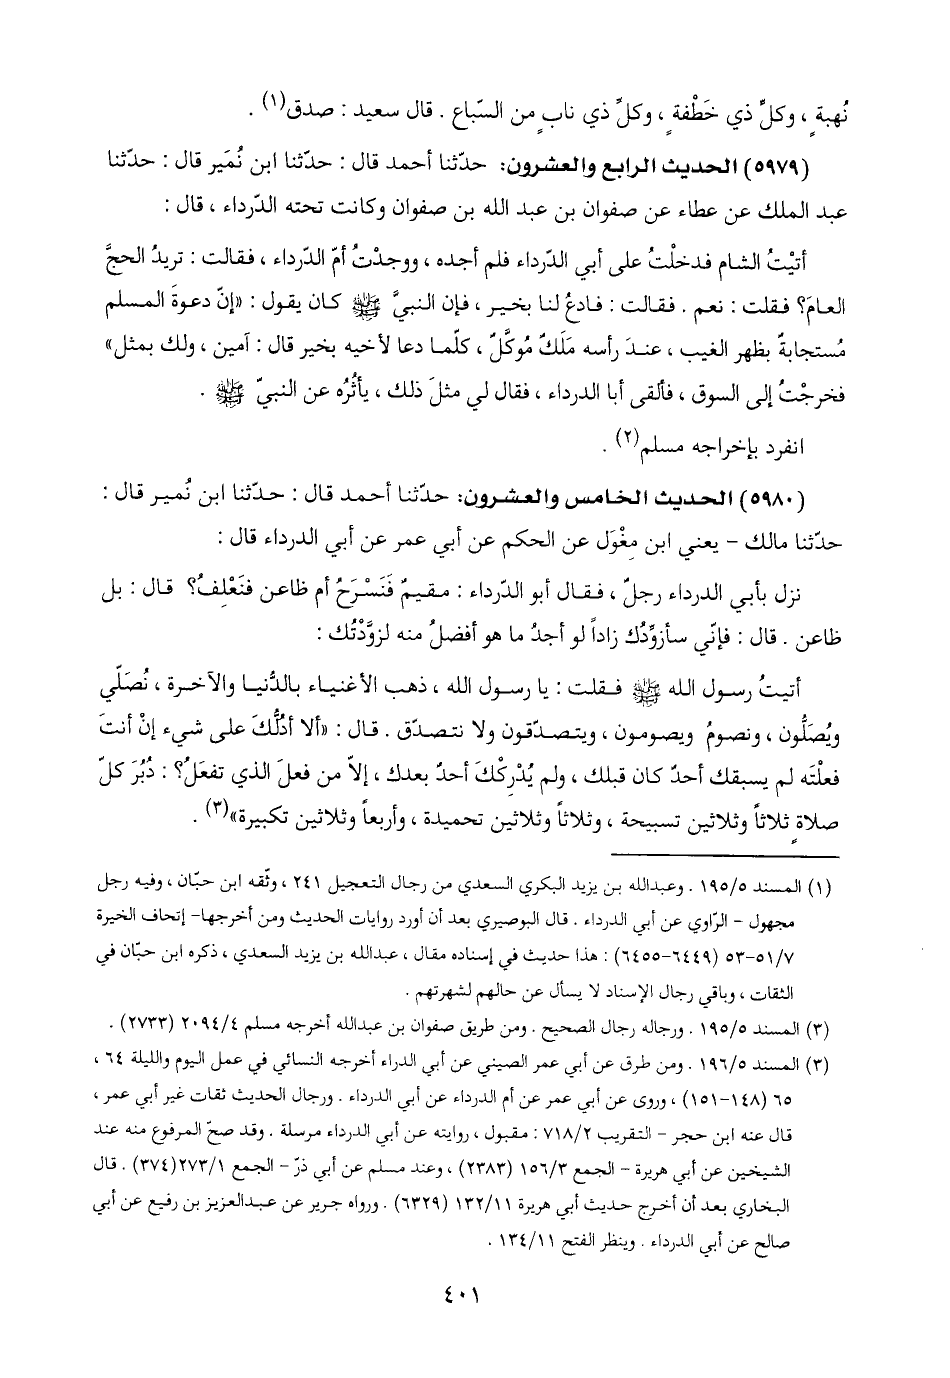 نُهبةٍ ، وكلِّ ذي خَطْفةٍ ، وكلِّ ذي نابٍ من السّباع . قال سعيد : صدق(١) .
(٥٩٧٩) الحديث الرابع والعشرون: حدّثنا أحمد قال : حدّثنا ابن نُمَير قال : حدّثنا
عبد الملك عن عطاء عن صفوان بن عبد الله بن صفوان وكانت تحته الدّرداء ، قال :
أتيْتُ الشام فدخلْتُ على أبي الدّرداء فلم أجده ، ووجدْتُ أمّ الدّرداء ، فقالت : تريدُ الحجَّ
العامَ؟ فقلت : نعم . فقالت : فادعُ لنا بخير ، فإن النبيَّ ﷺ كان يقول : «إنّ دعوةَ المسلم
مُستجابةٌ بظهر الغيب ، عندَ رأسه مَلَكٌ مُوكَّلٌ ، كلّما دعا لأخيه بخير قال : آمين ، ولك بمثل»
فخرجْتُ إلى السوق ، فألقى أبا الدرداء ، فقال لي مثلَ ذلك ، يأثُرُه عن النبيّ ﷺ .
انفرد بإخراجه مسلم(٢) .
(٥٩٨٠) الحديث الخامس والعشرون: حدّثنا أحمد قال : حدّثنا ابن نُمير قال :
حدّثنا مالك – يعني ابن مِغْوَل عن الحكم عن أبي عمر عن أبي الدرداء قال :
نزل بأبي الدرداء رجلٌ ، فقال أبو الدّرداء : مقيمٌ فَنَسْرَحُ أم ظاعن فنَعْلِفُ؟ قال : بل
ظاعن . قال : فإنّي سأزوِّدُك زاداً لو أجدُ ما هو أفضلُ منه لزوَّدْتُك :
أتيتُ رسول الله ﷺ فقلت : يا رسول الله ، ذهب الأغنياء بالدُّنيا والآخرة ، نُصَلّي
ويُصَلُّون ، ونصومُ ويصومون ، ويتصدّقون ولا نتصدّق . قال : «ألا أدُلُّكَ على شيء إنْ أنتَ
فعلْتَه لم يسبقك أحدٌ كان قبلك ، ولم يُدْرِكْكَ أحدٌ بعدك ، إلاّ من فعلَ الذي تفعَلُ؟ : دُبُرَ كلّ
صلاةٍ ثلاثاً وثلاثين تسبيحة ، وثلاثاً وثلاثين تحميدة ، وأربعاً وثلاثين تكبيرة»(٣) .
(١) المسند ١٩٥/٥ . وعبدالله بن يزيد البكري السعدي من رجال التعجيل ٢٤١ ، وثّقه ابن حبّان ، وفيه رجل
مجهول – الرّاوي عن أبي الدرداء . قال البوصيري بعد أن أورد روايات الحديث ومن أخرجها– إتحاف الخيرة
٥١/٧-٥٣ (٦٤٤٩–٦٤٥٥) : هذا حديث في إسناده مقال ، عبدالله بن يزيد السعدي ، ذكره ابن حبّان في
الثقات ، وباقي رجال الإسناد لا يسأل عن حالهم لشهرتهم .
(٣) المسند ١٩٥/٥ . ورجاله رجال الصحيح . ومن طريق صفوان بن عبدالله أخرجه مسلم ٢٠٩٤/٤ (٢٧٣٣) .
(٣) المسند ١٩٦/٥ . ومن طرق عن أبي عمر الصيني عن أبي الدراء أخرجه النسائي في عمل اليوم والليلة ٦٤ ،
٦٥ (١٤٨–١٥١) ، وروى عن أبي عمر عن أم الدرداء عن أبي الدرداء . ورجال الحديث ثقات غير أبي عمر ،
قال عنه ابن حجر – التقريب ٧١٨/٢ : مقبول ، روايته عن أبي الدرداء مرسلة . وقد صحّ المرفوع منه عند
الشيخين عن أبي هريرة – الجمع ١٥٦/٣ (٢٣٨٣) ، وعند مسلم عن أبي ذرّ – الجمع ٢٧٣/١(٣٧٤) . قال
البخاري بعد أن أخرج حديث أبي هريرة ١٣٢/١١ (٦٣٢٩) . ورواه جرير عن عبدالعزيز بن رفيع عن أبي
صالح عن أبي الدرداء . وينظر الفتح ١٣٤/١١ .
٤٠١